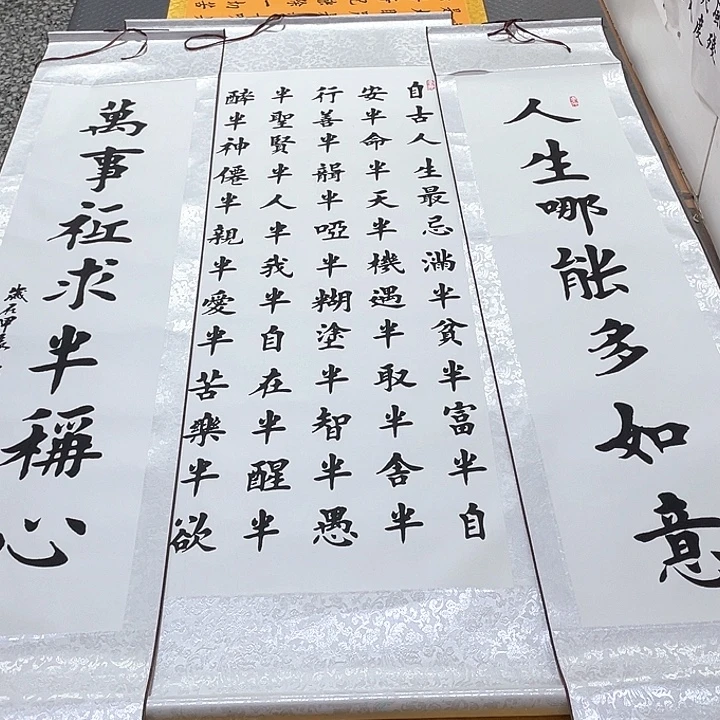 人生哪能多如意
自古人生最忌滿半貧半富半自
安半命半天半機遇半取半舍半
行善半半啞半糊塗半智半愚
半聖賢半人半我半自在半醒半
醉半神僊半親半愛半苦樂半欲
萬事祗求半稱心
歲在甲辰